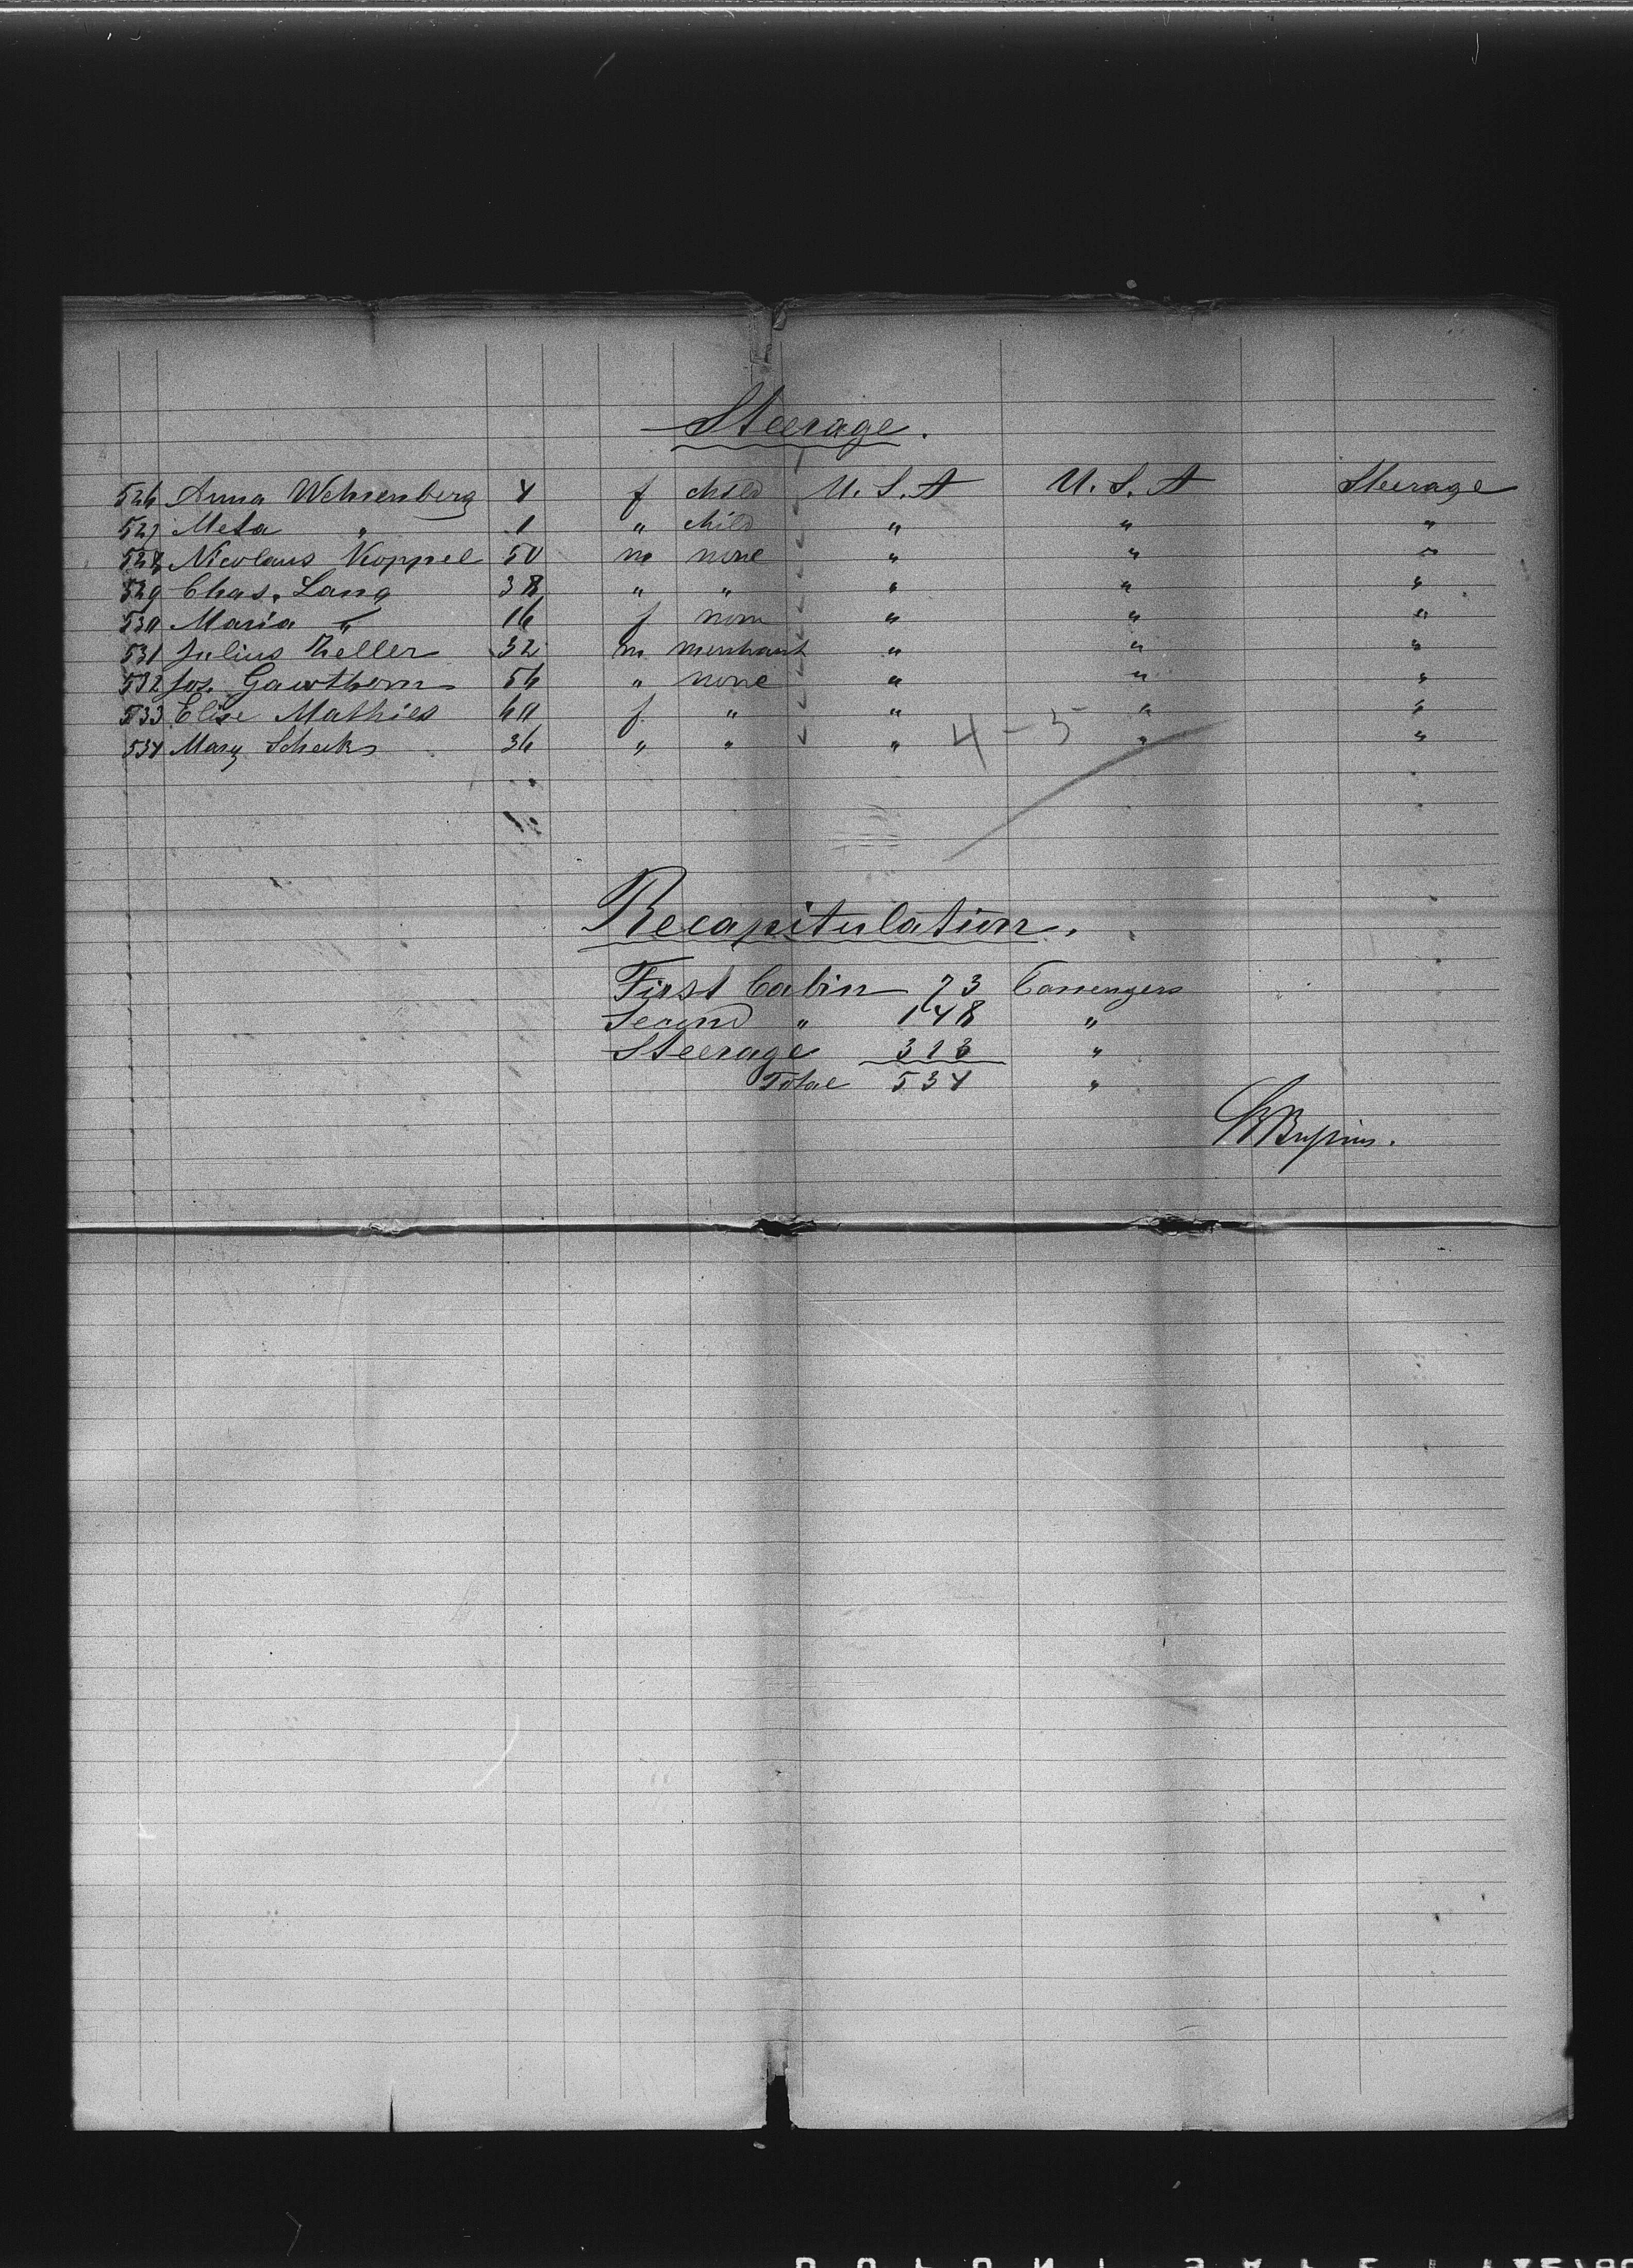 Steerage.
526 Anna Wehrenberg 4 f child U.S.A U.S.A Steerage
527 Meta " 1 " child " " "
528 Nicolaus Koppel 50 m none " " "
529 Chas. Lang 38 " " " " "
530 Maria " 16 f none " " "
531 Julius Zeller 32 m merchant " " "
532 Jos. Gawthorn 56 " none " " "
533 Elise Mathies 60 f " " " "
534 Mary 36 " " " " "
4-5
Recapitulation.
First Cabin 73 Passengers
Second " 148 "
Steerage 313 "
Total 534 "